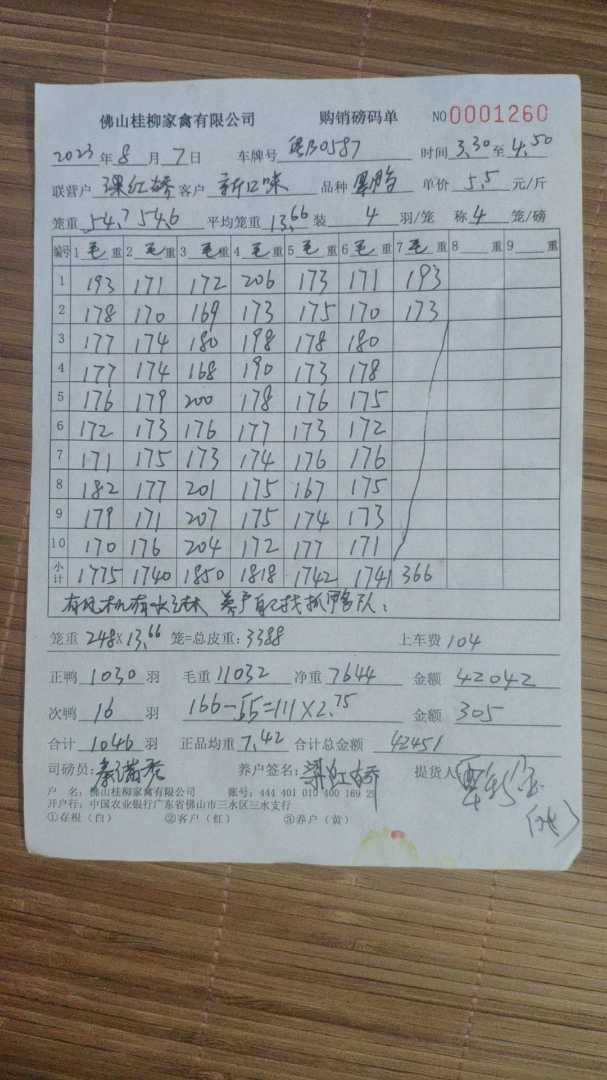 佛山桂柳家禽有限公司 购销磅码单 NO 0001260
2023年8月7日 车牌号 B0587 时间3.30至4.50
联营户 红娇 客户 新口味 品种 单价 5.5 元/斤
笼重 54.7 54.6 平均笼重13.66 装 4 羽/笼 称 4 笼/磅
编号 1毛重 2毛重 3毛重 4毛重 5毛重 6毛重 7毛重 8 重 9 重
1 193 171 172 206 173 171 193
2 178 170 169 173 175 170 173
3 177 174 180 198 178 180
4 177 174 168 190 173 178
5 176 179 200 178 176 175
6 172 173 176 177 173 172
7 171 175 173 174 176 176
8 182 177 201 175 167 175
9 179 171 207 175 174 173
10 170 176 204 172 177 171
小计 1775 1740 1850 1818 1742 1741 366
有风机有水 养户自己找抓鸭队:
笼重 248×13.66 笼=总皮重:3388 上车费 104
正鸭 1030 羽 毛重 11032 净重 7644 金额 42042
次鸭 16 羽 166-55=111×2.75 金额 305
合计 1046 羽 正品均重 7.42 合计总金额 42451
司磅员: 养户签名:梁红娇 提货人
户 名:佛山桂柳家禽有限公司 账号:444 401 010 400 169 29
开户行:中国农业银行广东省佛山市三水区三水支行
①存根(白) ②客户(红) ③养户(黄)